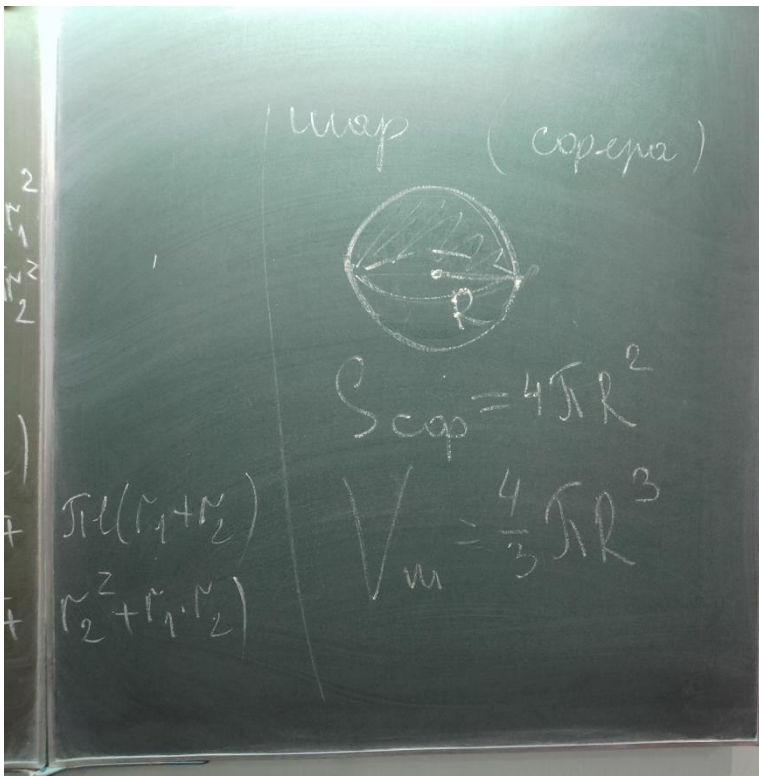 r₁²
r₂²
)
+ πl(r₁+r₂)
+ r₂²+r₁·r₂)
шар (сфера)
R
Sсф = 4πR²
Vш = 4/3 πR³